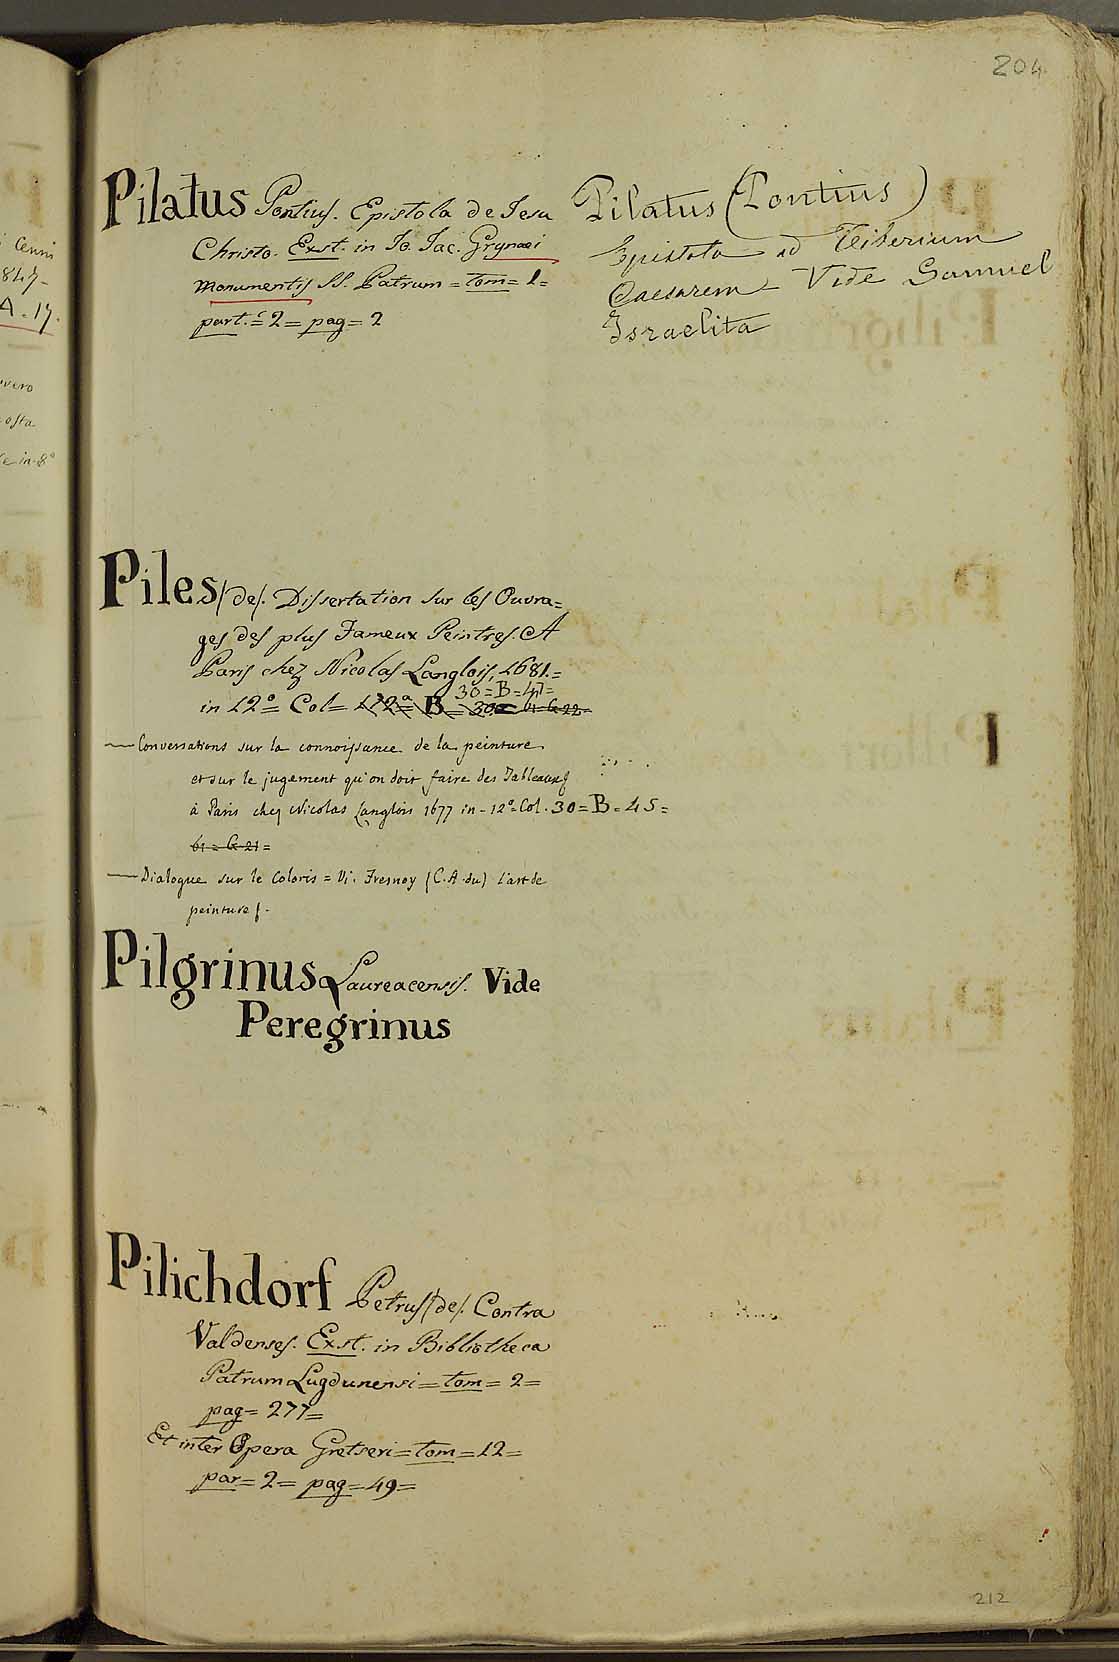 204
Pilatus Pontius. Epistola de Iesu
Christo. Exst. in Io. Iac. Grynaei
monumentis SS. Patrum = tom = 1 =
part. = 2 = pag = 2
Pilatus (Pontius)
Epistola ad Tiberium
Caesarem - Vide Samuel
Israelita
Piles (de). Dissertation sur les Ouvra=
ges des plus Fameux Peintres. A
Paris chez Nicolas Langlois, 1681. =
30 = B = 47 =
in 12° = Col = 172a = B = 30 = 61 G 22 =
— Conversations sur la connoissance de la peinture
et sur le jugement qu'on doit faire des Tableaux
à Paris chez Nicolas Langlois 1677 in - 12° = Col. 30 = B = 45 =
61 = G 21 =
— Dialogue sur le Coloris = Vi. Fresnoy (C. A. du) L'art de
peinture.
Pilgrinus Laureacensis. Vide
Peregrinus
Pilichdorf Petrus (de). Contra
Valdenses. Exst. in Bibliotheca
Patrum Lugdunensi = tom = 2 =
pag = 277 =
Et inter Opera Gretseri = tom = 12 =
par = 2 = pag = 49 =
212
Cenni
847 -
A. 17.
vero
osta
in 8°